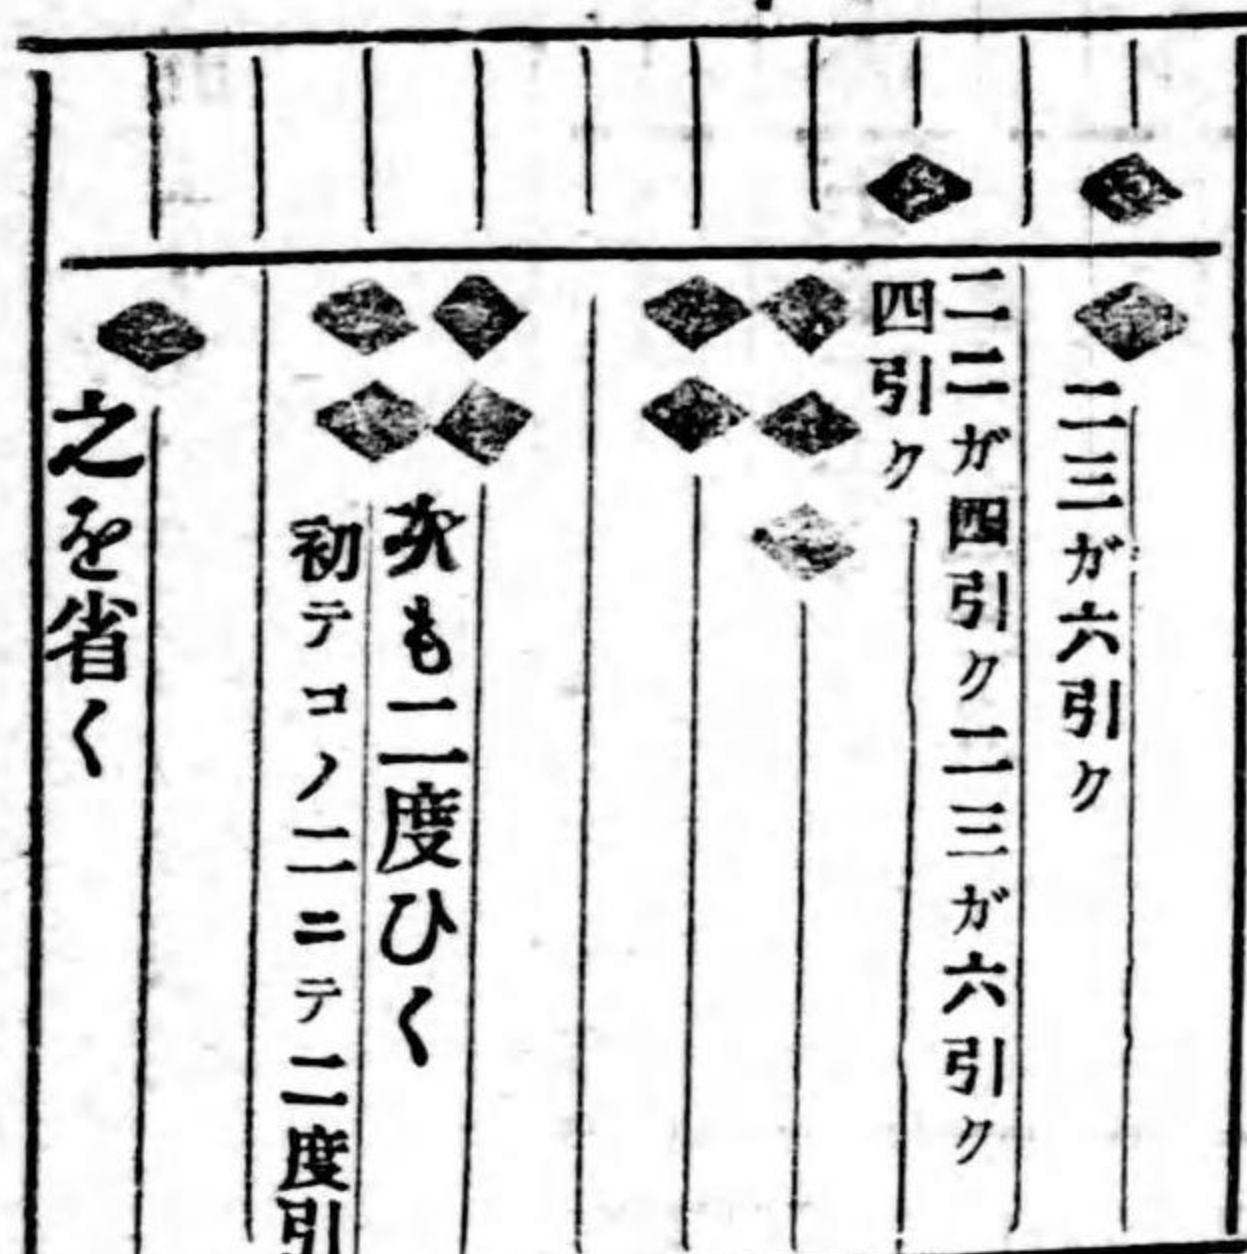 二三ガ六引ク
二二ガ四引ク二三ガ六引ク
四引ク
次も二度ひく
初テコノ二ニテ二度引
之を省く